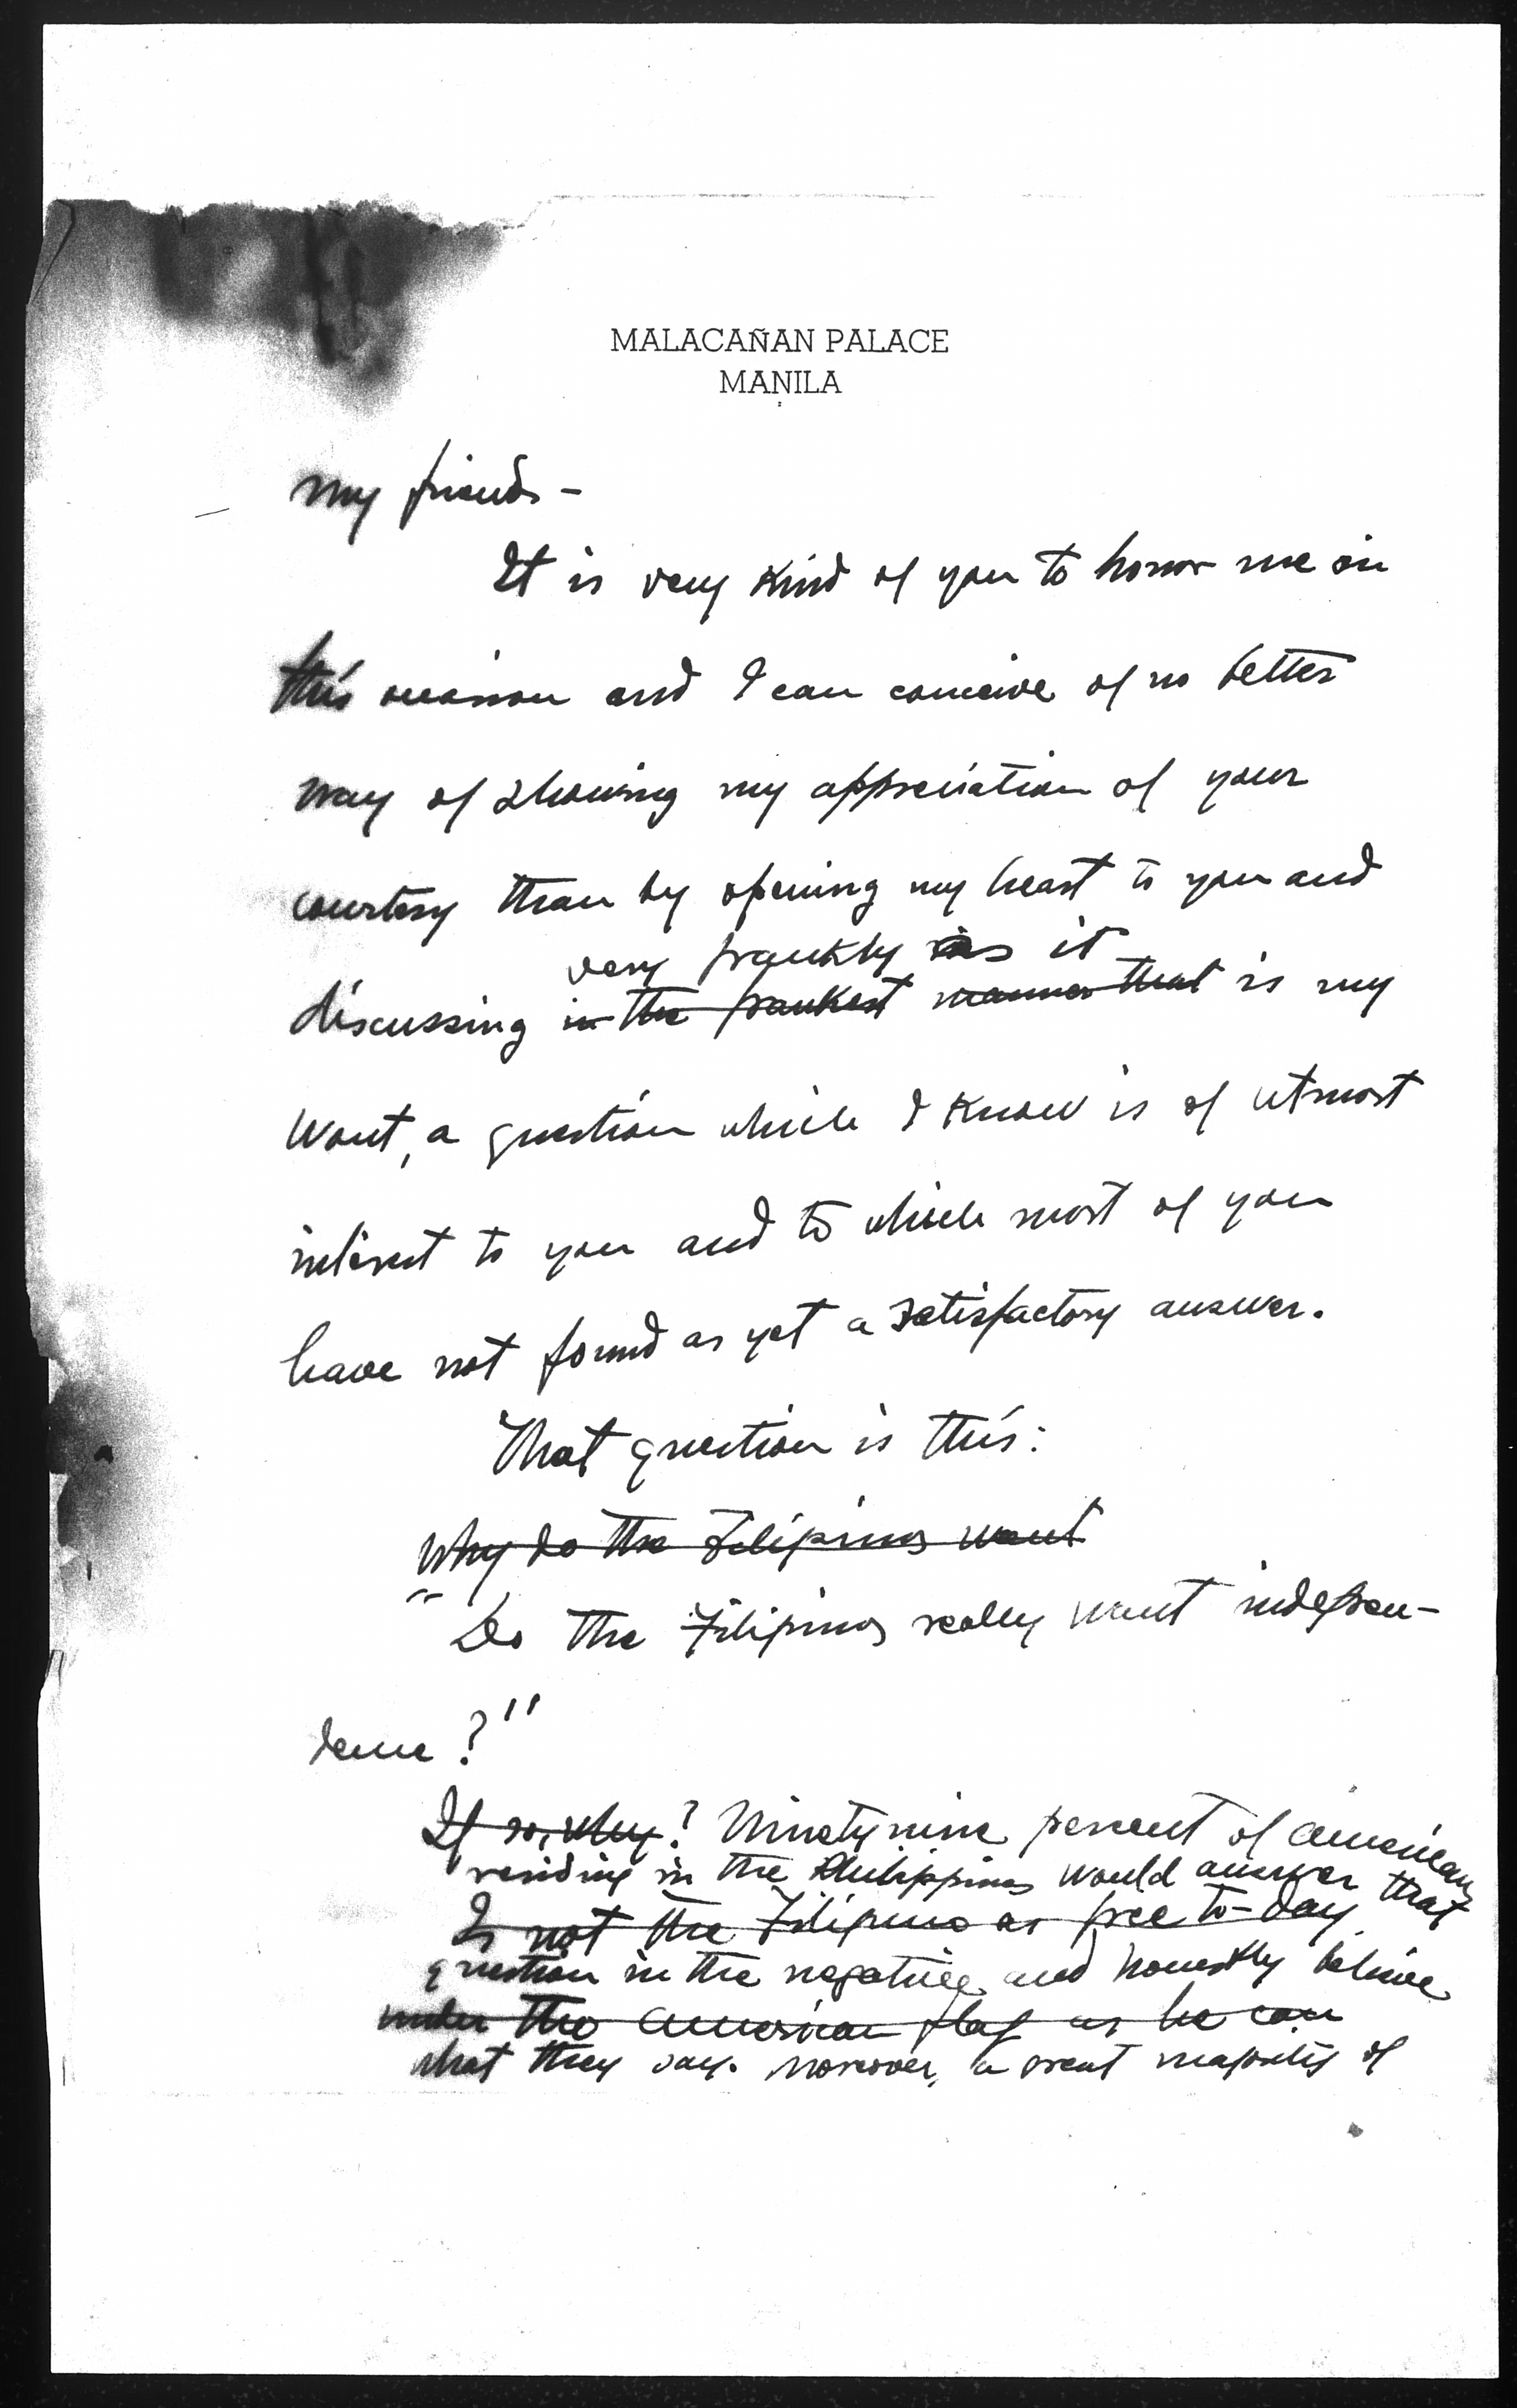 MALACAÑAN PALACE
MANILA
My friends -
It is very kind of you to honor me on
this occasion and I can conceive of no better
way of showing my appreciation of your
courtesy than by opening my heart to you and
very frankly as it
discussing in the frankest manner that is my
wont, a question which I know is of utmost
interest to you and to which most of you
have not found as yet a satisfactory answer.
That question is this:
Why do the Filipinos want
"Do the Filipinos really want indepen-
dence?"
If so, why? Ninety nine percent of Americans
residing in the Philippines would answer that
Is not the Filipino as free to-day
question in the negative and honestly believe
under the American flag as he can
what they say. Moreover, a great majority of